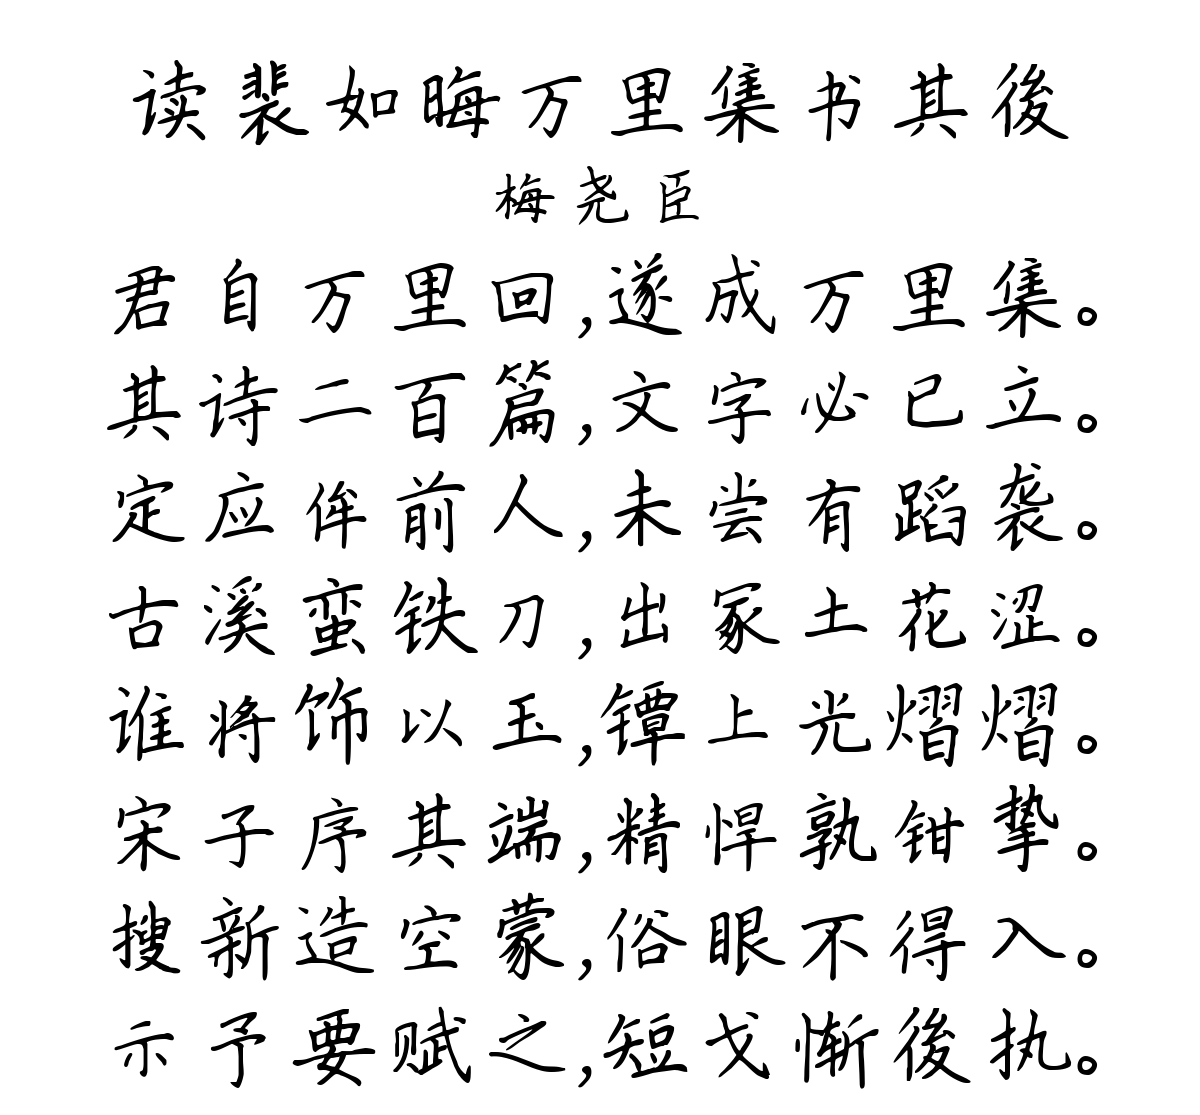 读裴如晦万里集书其後
梅尧臣
君自万里回,遂成万里集。
其诗二百篇,文字必已立。
定应侔前人,未尝有蹈袭。
古溪蛮铁刀,出冢土花涩。
谁将饰以玉,镡上光熠熠。
宋子序其端,精悍孰钳挚。
搜新造空蒙,俗眼不得入。
示予要赋之,短戈惭後执。